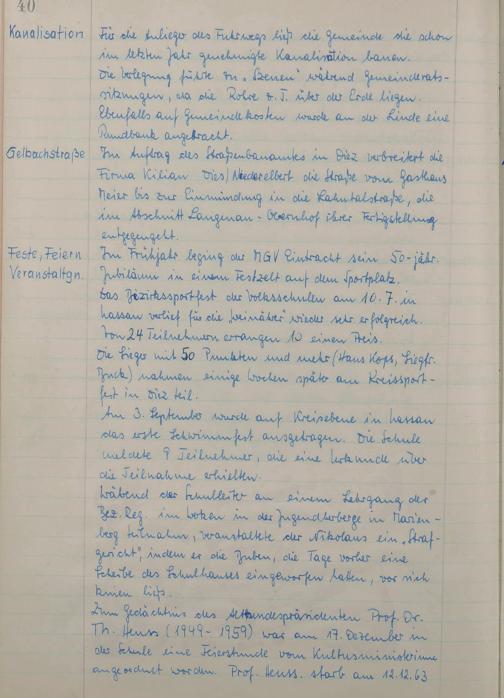 40
Kanalisation
Für die Anlieger des Fuhrwegs ließ die Gemeinde die schon
im letzten Jahr genehmigte Kanalisation bauen.
Die Verlegung führte zu „Szenen" während Gemeinderats-
sitzungen, da die Rohre z.T. über der Erde liegen.
Ebenfalls auf Gemeindekosten wurde an der Linde eine
Rundbank angebracht.
Gelbachstraße
Im Auftrag des Straßenbauamtes in Diez verbreitert die
Firma Kilian Dies/Niederelbert die Straße vom Gasthaus
Meier bis zur Einmündung in die Lahntalstraße, die
im Abschnitt Langenau - Obernhof ihrer Fertigstellung
entgegengeht.
Feste, Feiern
Veranstaltgn.
Im Frühjahr beging der MGV Eintracht sein 50-jähr.
Jubiläum in einem Festzelt auf dem Sportplatz.
Das Bezirkssportfest der Volksschulen am 10.7. in
Nassau verlief für die „Weinährer" wieder sehr erfolgreich.
Von 24 Teilnehmern errangen 10 einen Preis.
Die Sieger mit 50 Punkten und mehr (Hans Kops, Siegfr.
) nahmen einige Wochen später am Kreissport-
fest in Diez teil.
Am 3. September wurde auf Kreisebene in Nassau
das erste Schwimmfest ausgetragen. Die Schule
meldete 9 Teilnehmer, die eine Urkunde über
die Teilnahme erhielten.
Während der Schulleiter an einem Lehrgang der
Bez. Reg. im in der Jugendherberge in Marien-
berg teilnahm, veranstaltete der Nikolaus ein „Straf-
gericht", indem er die Buben, die Tage vorher eine
Scheibe des Schulhauses eingeworfen hatten, vor sich
knien ließ.
Zum Gedächtnis des Altbundespräsidenten Prof. Dr.
Th. Heuss (1949-1959) war am 17. Dezember in
der Schule eine Feierstunde vom Kultusministerium
angeordnet worden. Prof. Heuss starb am 12.12.63